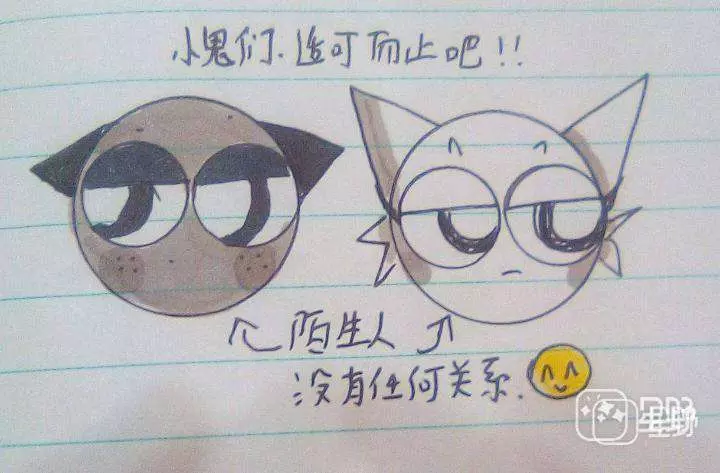 小鬼们.适可而止吧!!
陌生人
没有任何关系.